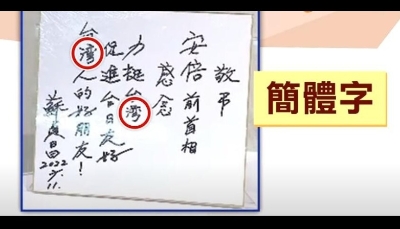 敬弔
安倍前首相
感念
力挺台湾
促進台日友好
台湾人的好朋友!
蘇貞昌
2022
7/11.
簡體字